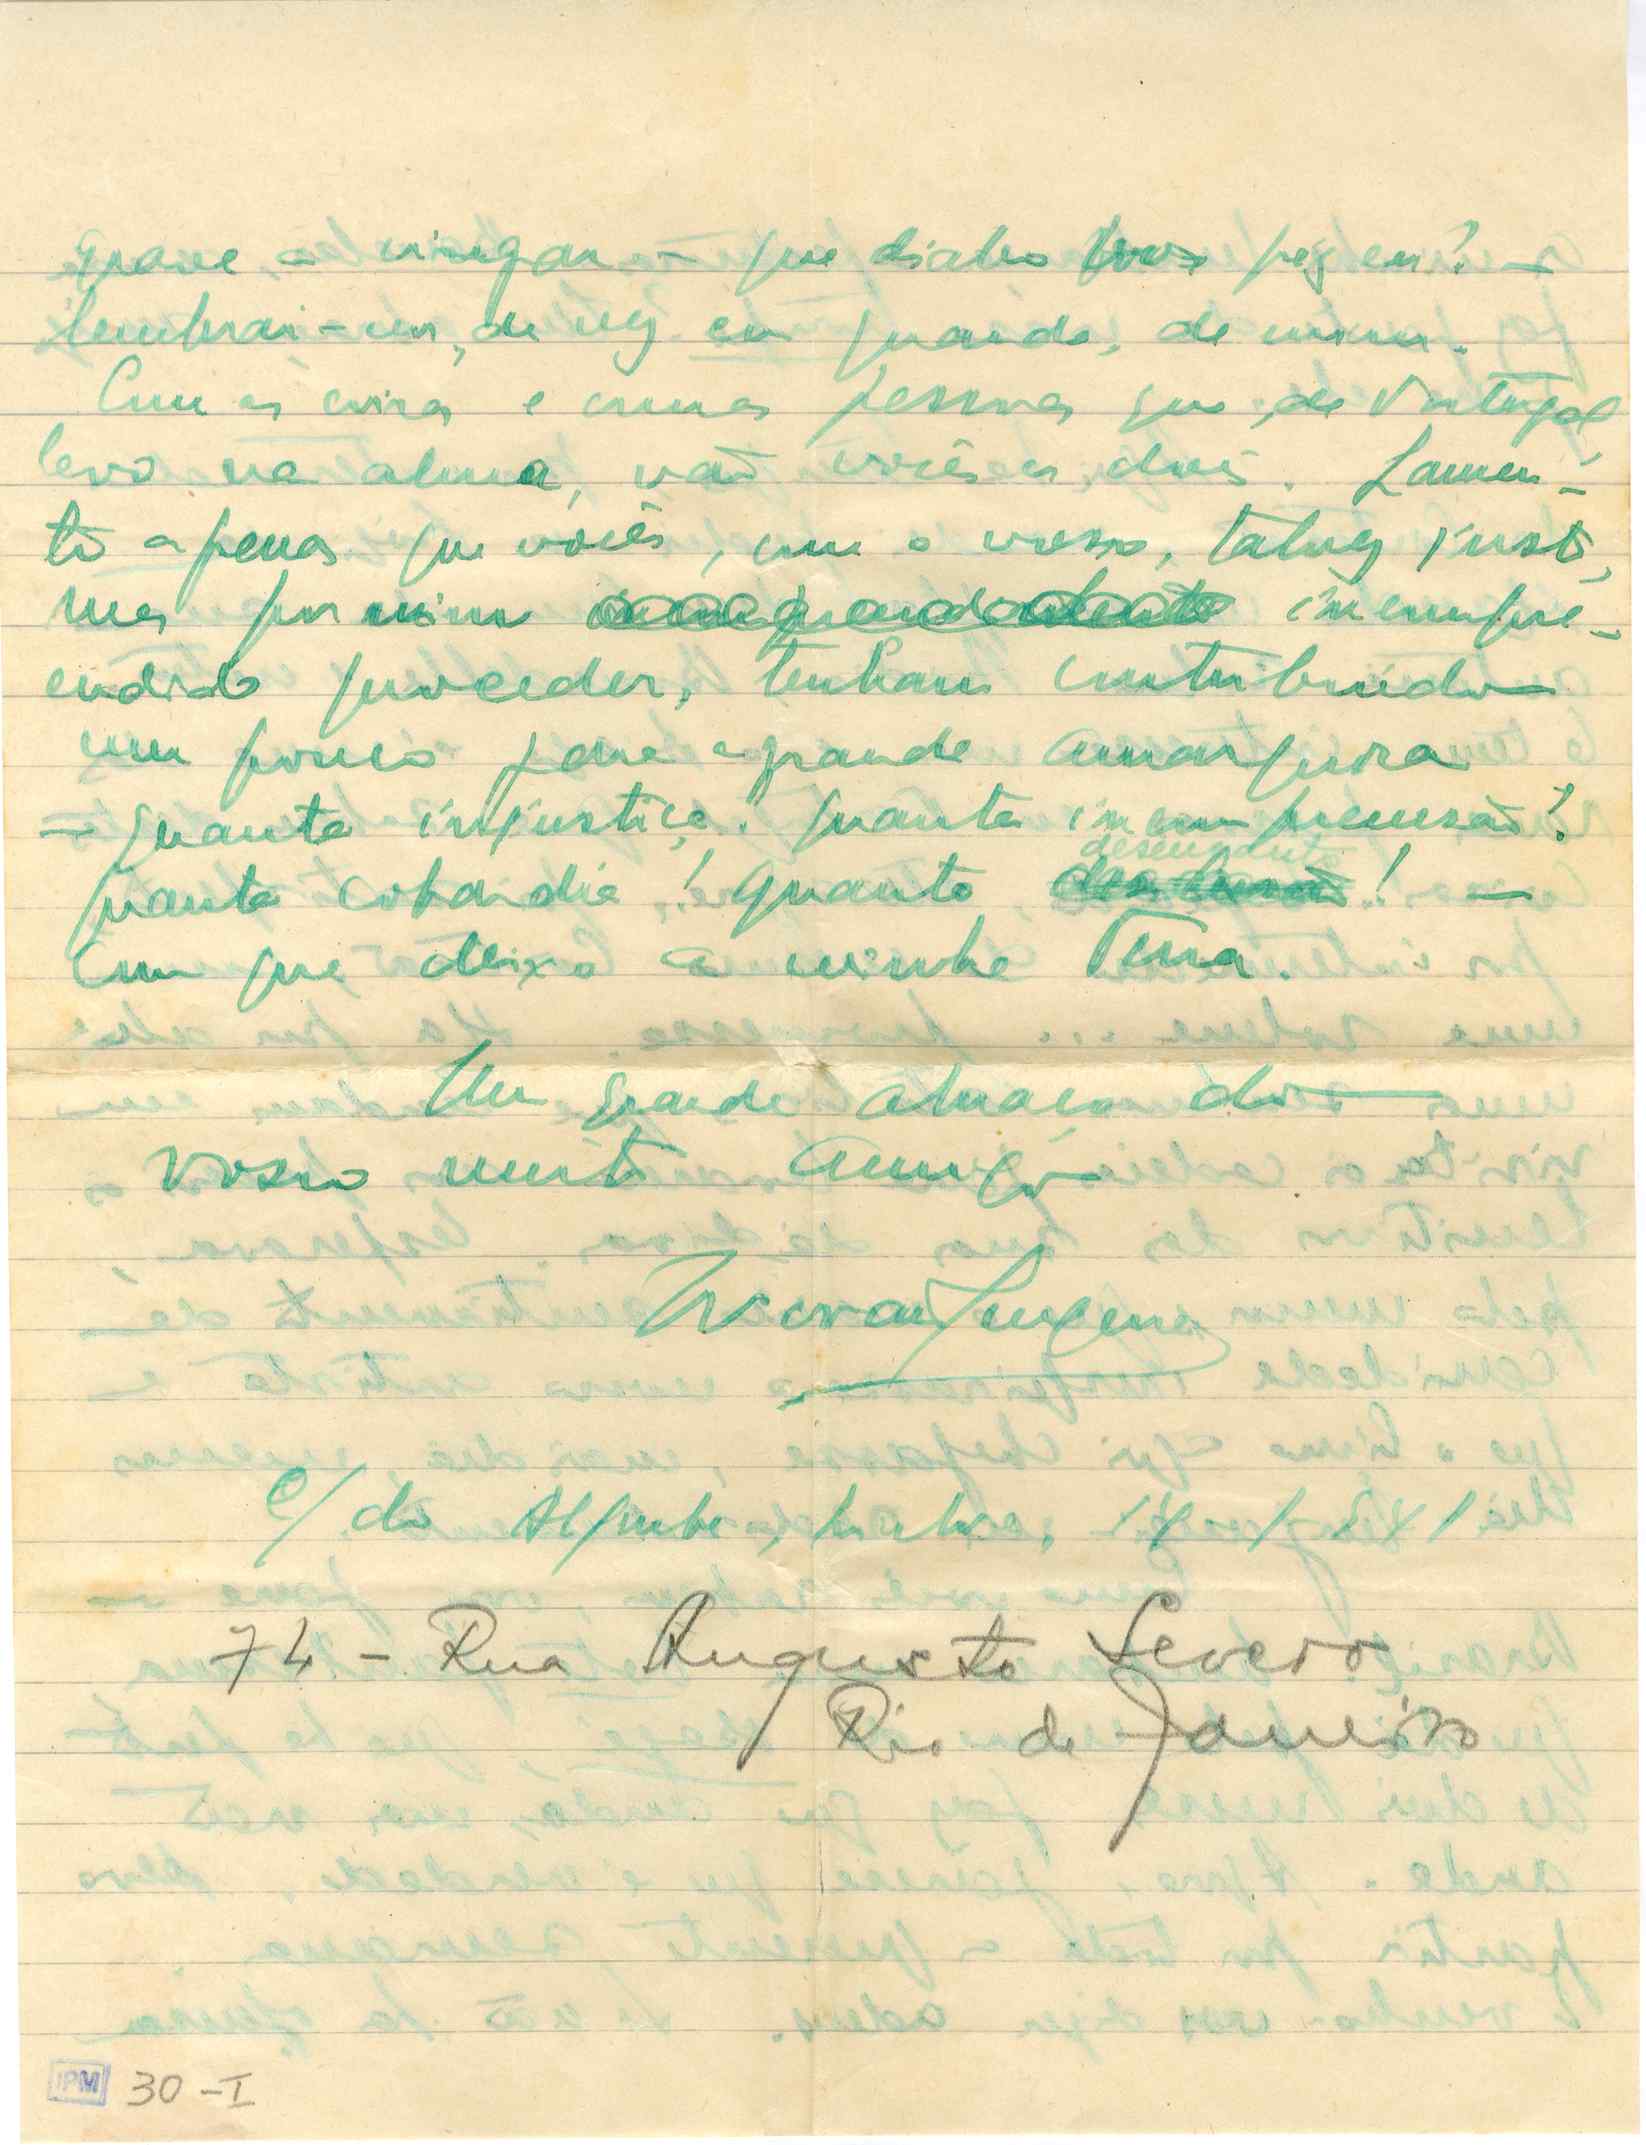 grave a vingar — que diabo vos fez eu? —
lembrai-vos, de vez em quando, de mim.
Com as coisas e umas pessoas que, de Portugal,
levo na alma, vão vocês os dois. Lamen-
to apenas que vocês, com o vosso, talvez justo,
mas por mim incompre-
endido proceder, tenham contribuído
um pouco para a grande amargura
— quanta injustiça! quanta incompreensão!
quanta cobardia! quanto desencanto! —
com que deixo a minha Terra.
Um grande abraço do
vosso muito amigo
C/ do Aljube, Lisboa,
74 - Rua Augusto Severo
Rio de Janeiro
IPM 30 - I